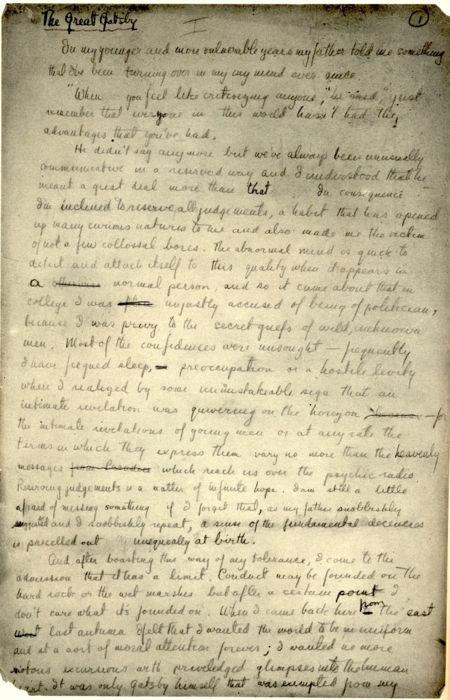 The Great Gatsby
I
1
In my younger and more vulnerable years my father told me something
that I've been turning over in my my mind ever since.
"When you feel like critisizing anyone," he said, "just
remember that everyone in this world hasn't had the
advantages that you've had.
He didn't say anymore but we've always been unusually
communicative in a reserved way and I understood that he
meant a great deal more than that In consequence
I'm inclined to reserve all judgements, a habit that has opened
up many curious natures to me and also made me the victim
of not a few collossal bores. The abnormal mind is quick to
detect and attach itself to this quality when it appears in
a normal person, and so it came about that in
college I was unjustly accused of being of politician,
because I was privy to the secret griefs of wild, unknown
men. Most of the confidences were unsought — frequently
I have feigned sleep, preoccupation or a hostile levity
when I realized by some unmistakeable sign that an
intimate revelation was quivering on the horizon — for
the intimate revelations of young men or at any rate the
terms in which they express them vary no more than the heavenly
messages which reach us over the psychic radio.
Reserving judgements is a matter of infinite hope. I am still a little
afraid of missing something if I forget that, as my father snobbishly
and I snobbishly repeat, a sense of the fundamental decencies
is parcelled out unequally at birth.
And, after boasting this way of my tolerance, I come to the
admission that it has a limit. Conduct may be founded on the
hard rock or the wet marshes but after a certain point I
don't care what it's founded on. When I came back here from the east
last autumn I felt that I wanted the world to be in uniform
and at a sort of moral attention forever; I wanted no more
riotous excursions with priviledged glimpses into the human
heart. It was only Gatsby himself that was exempted from my